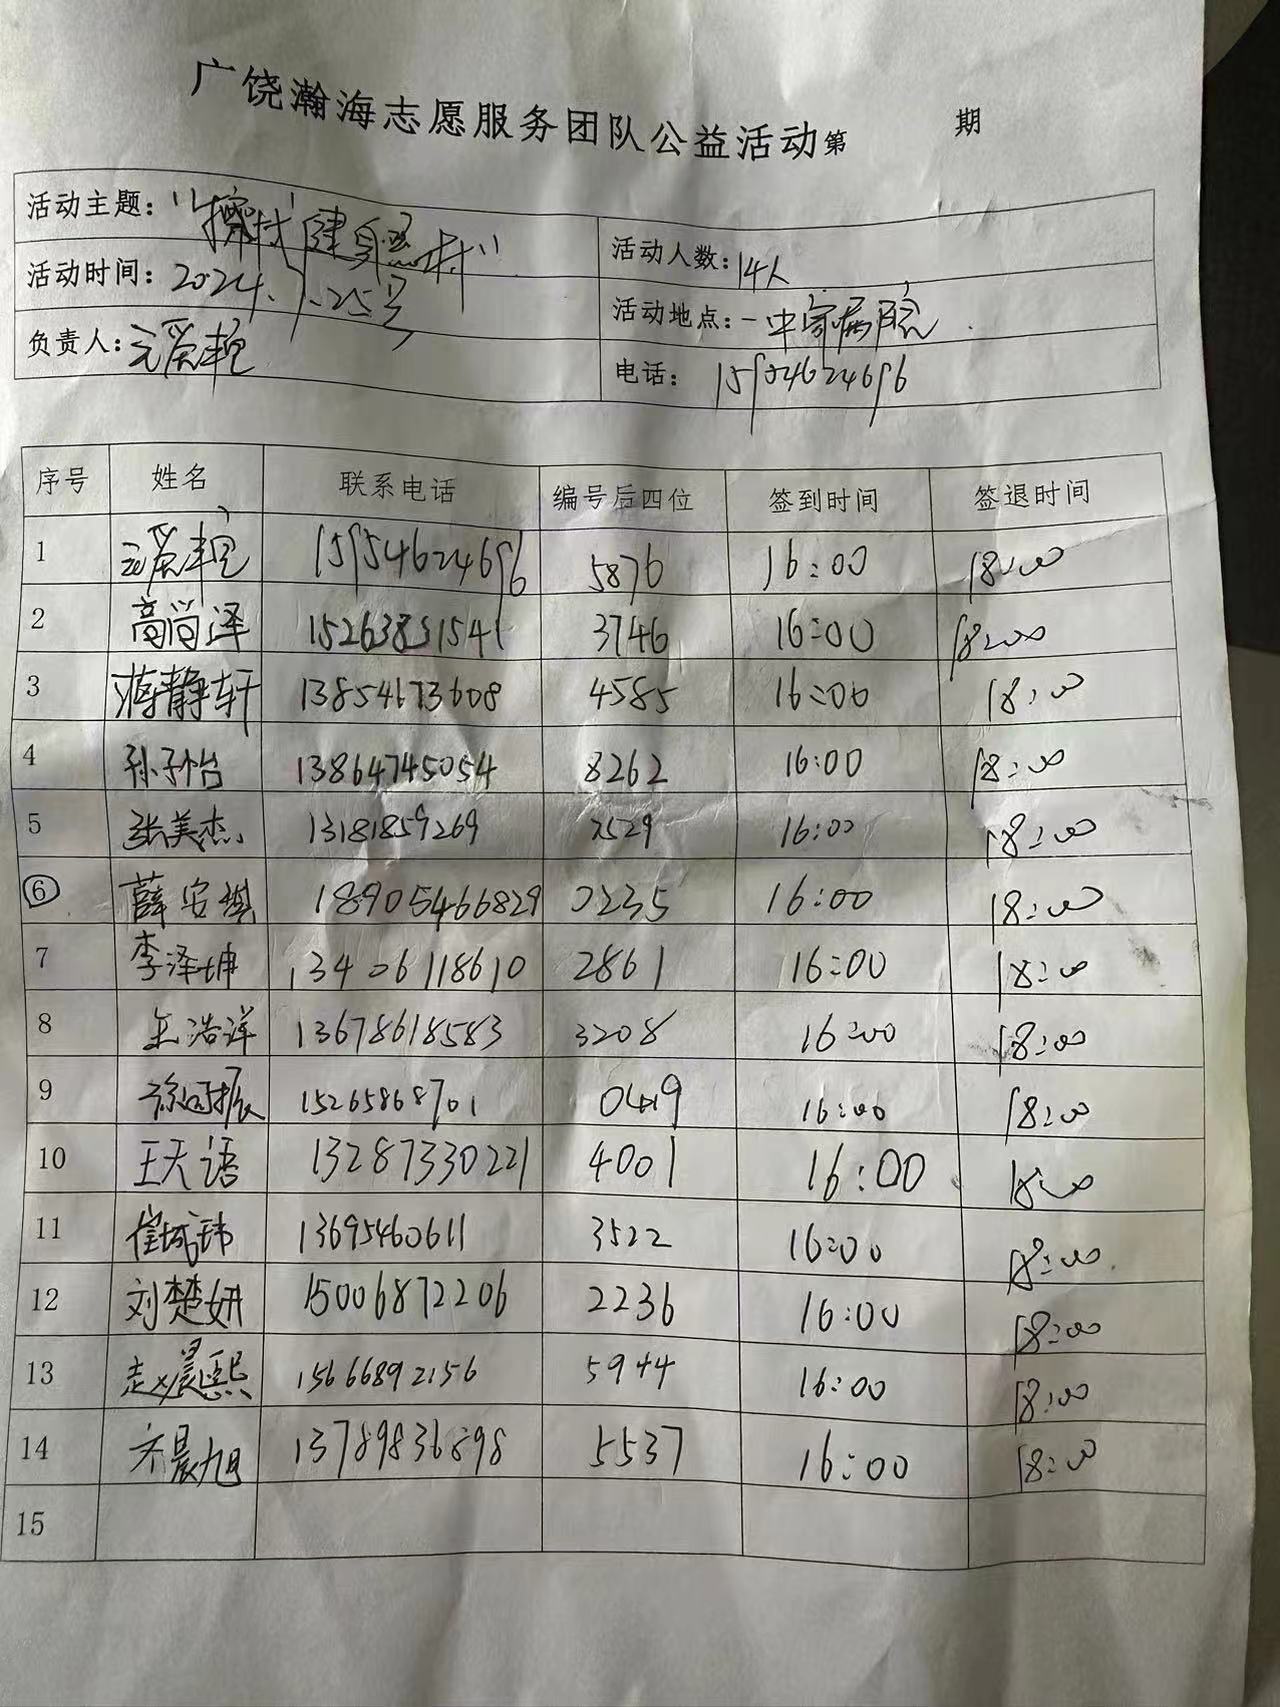 广饶瀚海志愿服务团队公益活动第 期
活动主题: 健身器材"
活动人数: 14人
活动时间: 2024.7.25号
活动地点: 一中家属院
负责人:
电话: 15954624696
序号 姓名 联系电话 编号后四位 签到时间 签退时间
1 15954624696 5876 16:00 18:00
2 高尚泽 15263851541 3746 16:00 18:00
3 蒋静轩 13854673608 4585 16:00 18:00
4 孙子怡 13864745054 8262 16:00 18:00
5 张美杰 13181859269 2529 16:00 18:00
6 薛安琪 18905466829 0235 16:00 18:00
7 李泽坤 13406118610 2861 16:00 18:00
8 王浩洋 13678618583 3208 16:00 18:00
9 15265868701 0419 16:00 18:00
10 王天语 13287330221 4001 16:00 18:00
11 崔城玮 13695460611 3522 16:00 18:00
12 刘楚妍 15006872206 2236 16:00 18:00
13 赵晨熙 15666892156 5944 16:00 18:00
14 齐晨旭 13789836898 5537 16:00 18:00
15